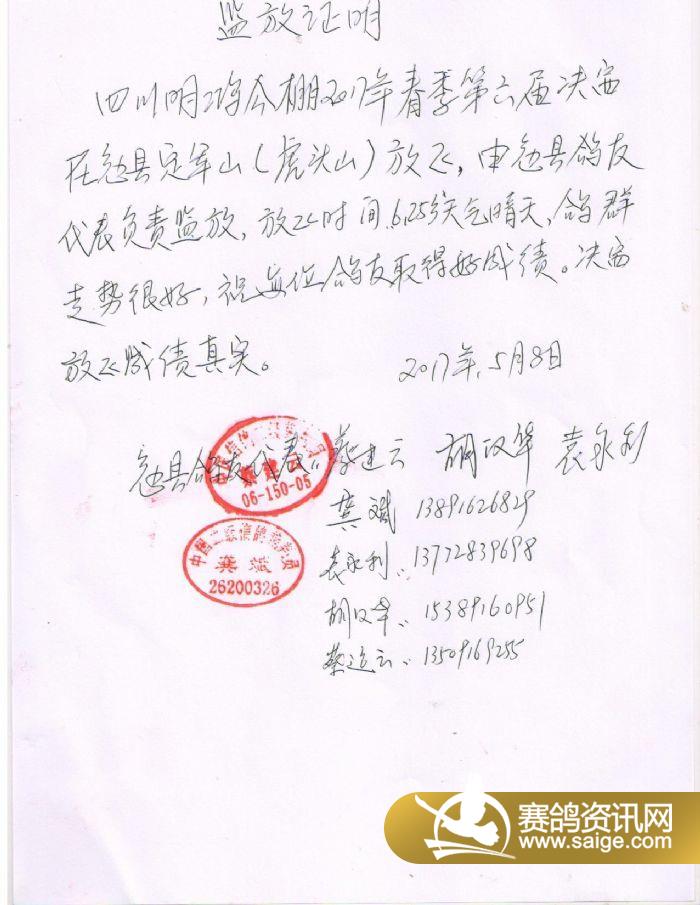 监放证明
四川明珠公棚2017年春季第六届决赛
在勉县定军山(虎头山)放飞,由勉县鸽友
代表负责监放,放飞时间6.25分天气晴天,鸽群
走势很好,祝每位鸽友取得好成绩。决赛
放飞成绩真实。 2017年5月8日
勉县鸽友代表: 蔡建云 胡汉华 袁永利
06-150-05
龚斌 13891626829
中国二级信鸽裁判员
龚斌
26200326
袁永利:13772839698
胡汉华:15389160951
蔡建云:13509169255
赛鸽资讯网
www.saige.com